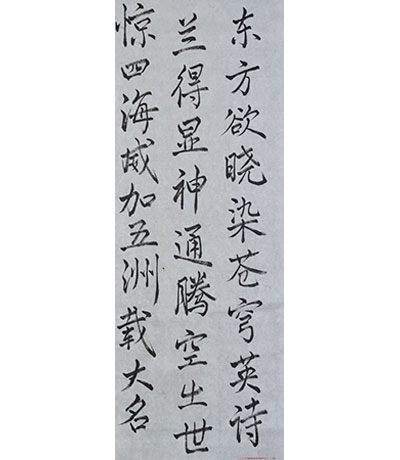 东方欲晓染苍穹英诗
兰得显神通腾空出世
惊四海威加五洲载大名